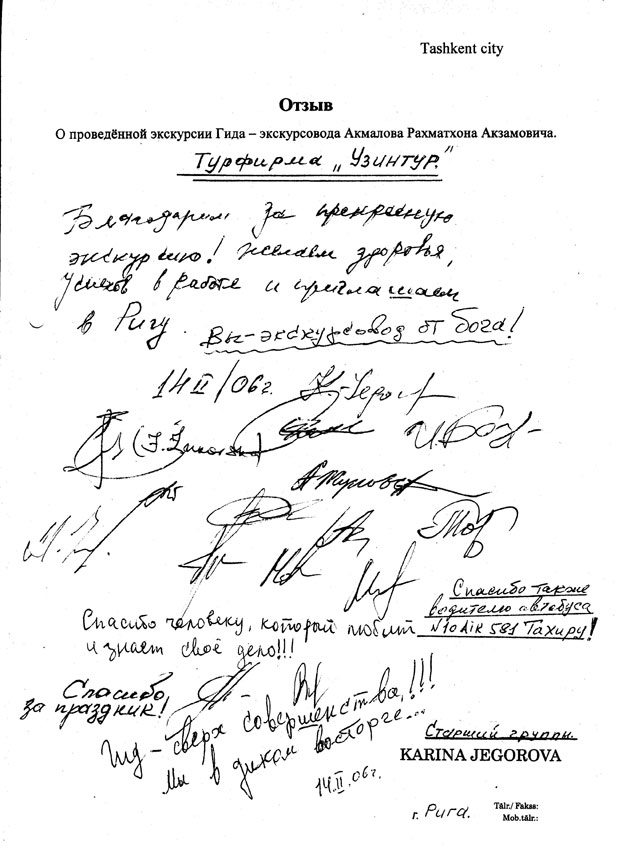 Tashkent city
Отзыв
О проведённой экскурсии Гида – экскурсовода Акмалова Рахматхона Акзамовича.
Турфирма „Узинтур.”
Благодарим за прекрасную
экскурсию! Желаем здоровья,
успехов в работе и приглашаем
в Ригу. Вы-экскурсовод от бога!
14 II/06г.
Спасибо также
водителю автобуса
N10 AiK 581 Тахиру!
Спасибо человеку, который любит
и знает своё дело!!!
Спасибо
за праздник!
Гид – сверх совершенства!!!
Мы в диком восторге...
14.II.06г.
Старший группы.
KARINA JEGOROVA
г. Рига.
Tālr./ Fakss:
Mob.tālr.: